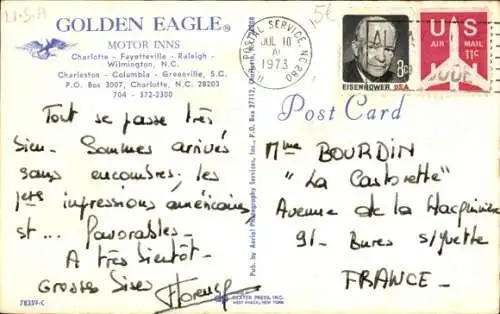 U.S.A
GOLDEN EAGLE®
MOTOR INNS
Charlotte - Fayetteville - Raleigh -
Wilmington, N.C.
Charleston - Columbia - Greenville, S.C.
P.O. Box 3007, Charlotte, N.C. 28203
704 - 372-2300
Tout se passe très
bien. Sommes arrivés
sans encombres. les
1ères impressions américaines
st ... favorables -
A très bientôt -
Grosses Bises
Florence
78359-C
Pub. by Aerial Photography Services, Inc., P.O. Box 27112, Charlotte,
DEXTER PRESS, INC.
WEST NYACK, NEW YORK
POSTAL SERVICE, NC 280
JUL 10
1973
5€
8c
EISENHOWER USA
US
AIR MAIL 11c
Post Card
Mme BOURDIN
"La Castorette"
Avenue de la Hacquinière
91- Bures s/yvette
FRANCE -